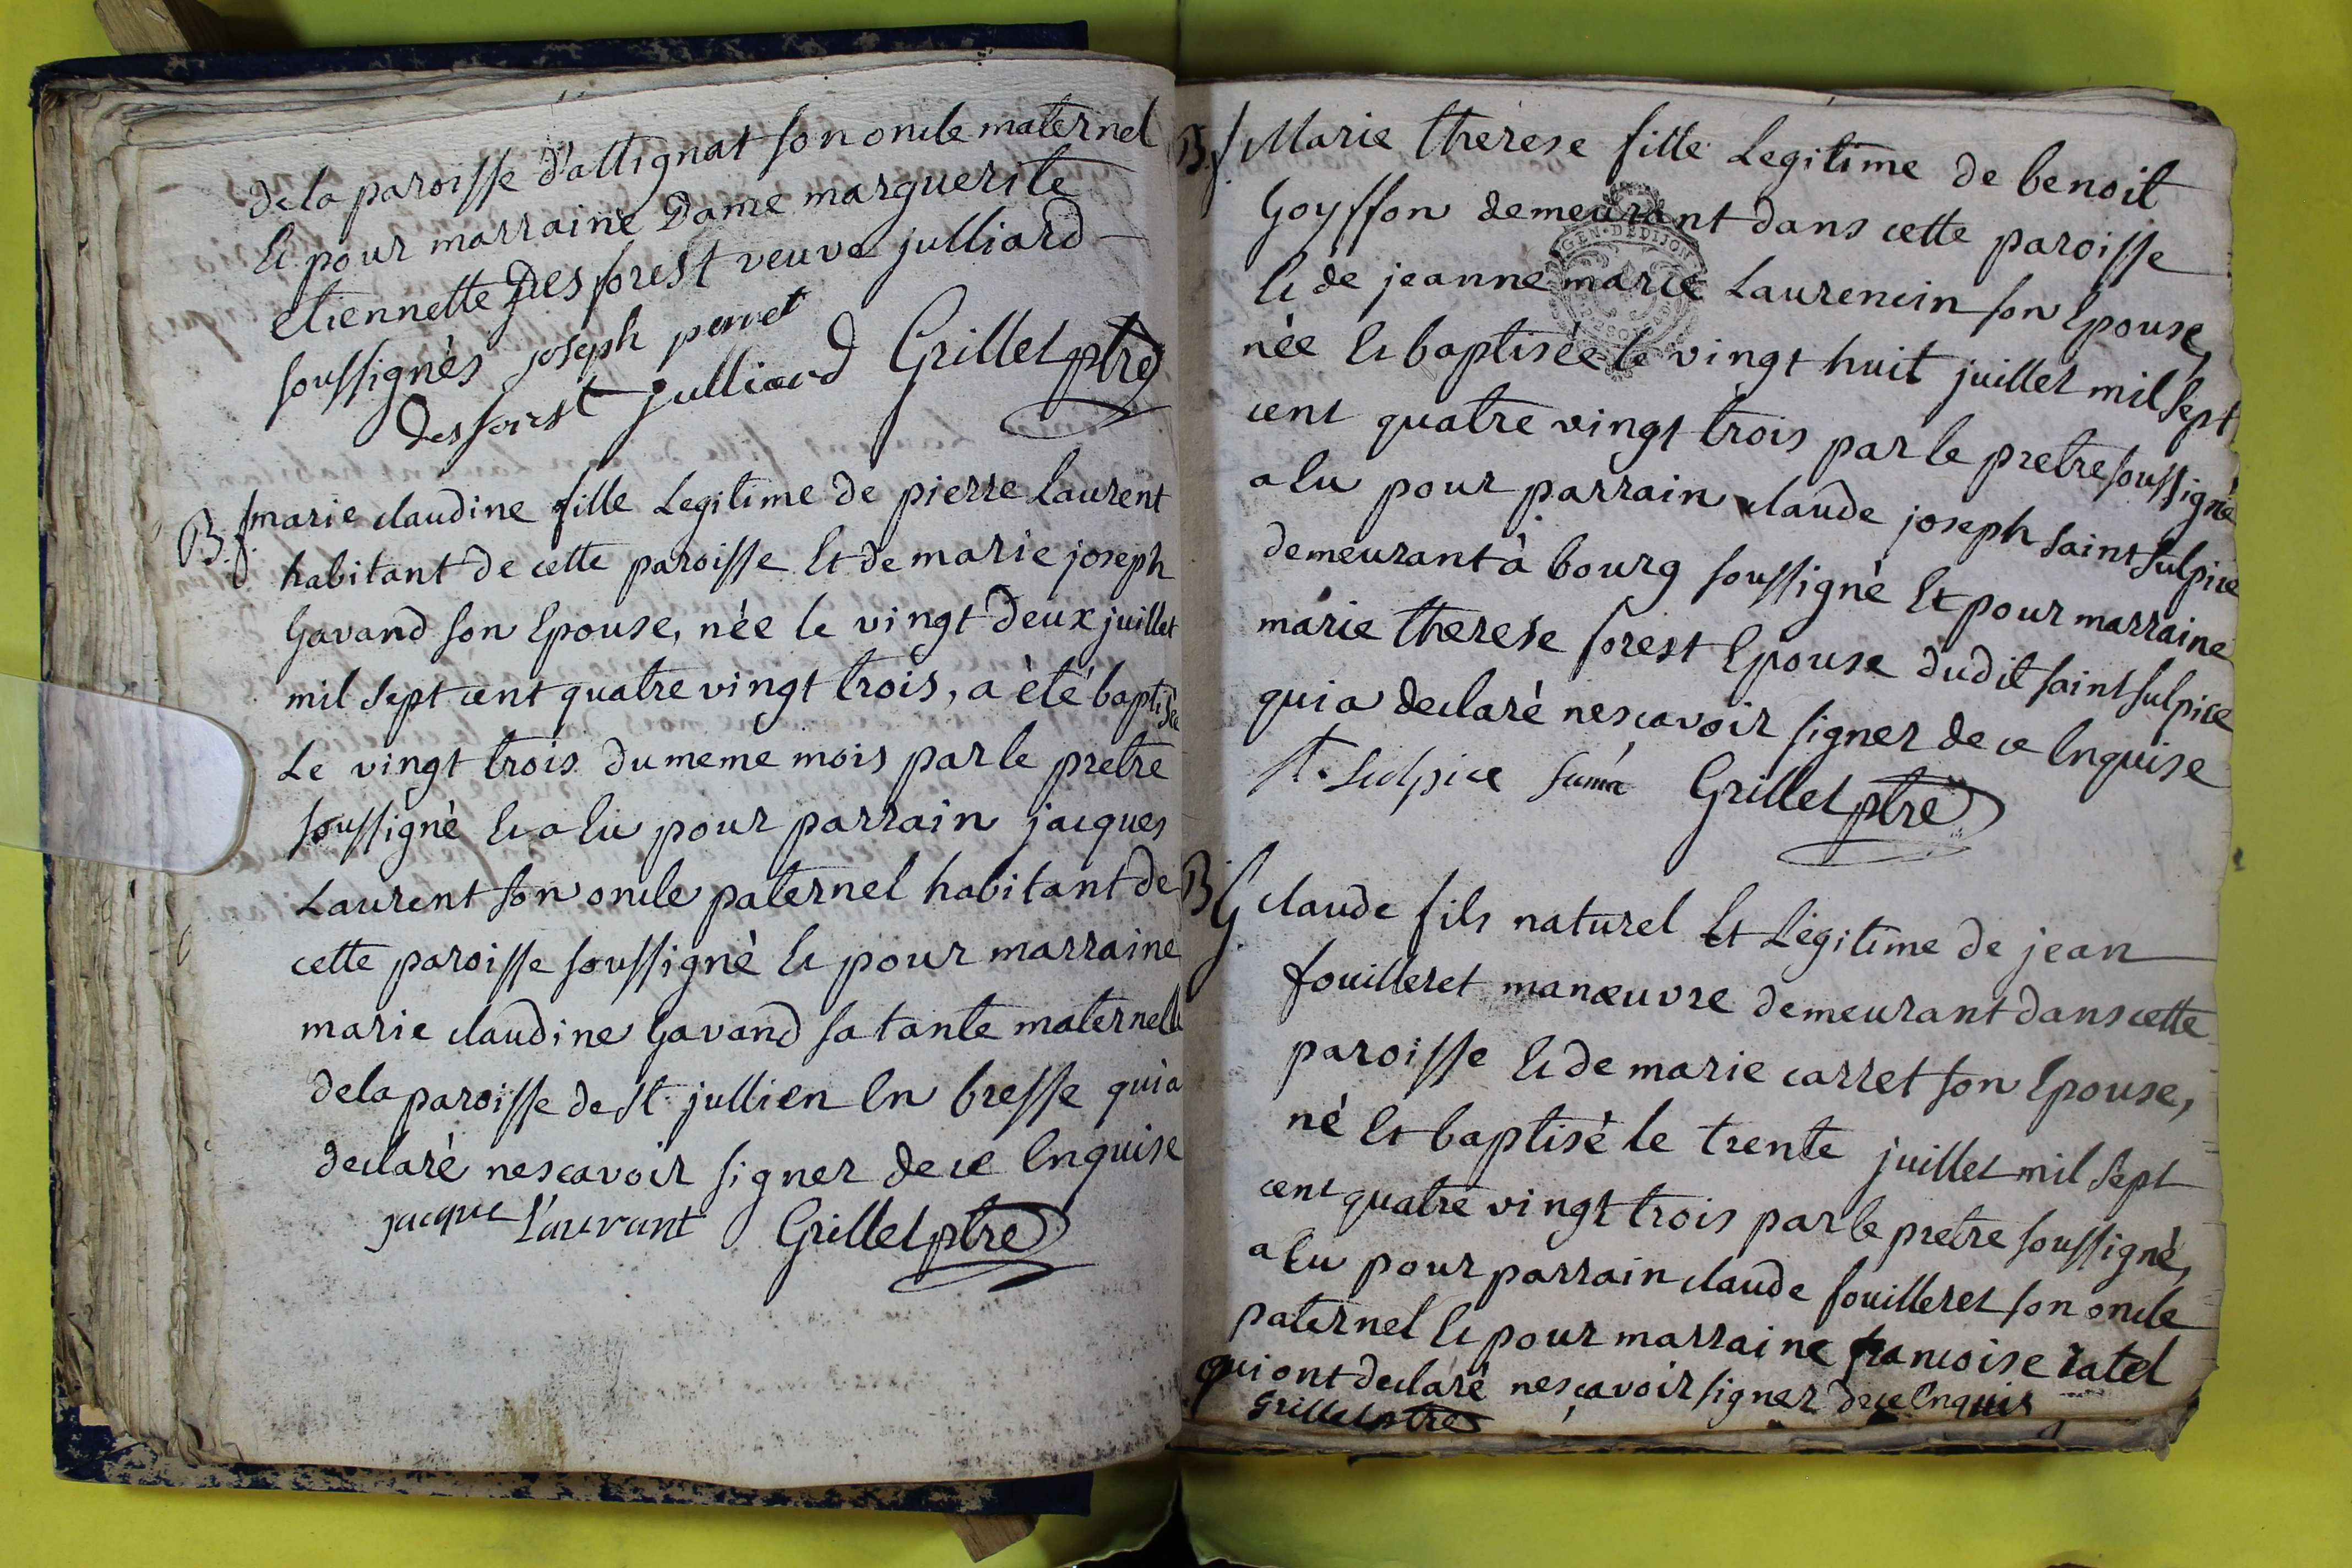 de la paroisse d'attignat son oncle maternel
et pour marraine Dame marguerite
etiennette Desforest veuve julliard
soussignés joseph perret
desforest julliard Grillet ptre
B.f. marie claudine fille Legitime de pierre laurent
habitant de cette paroisse Et de marie joseph
Gavand son Epouse, née le vingt deux juillet
mil sept cent quatre vingt trois, a èté baptisée
Le vingt trois du meme mois par le pretre
soussigné Et a Eu pour parrain jacques
Laurent son oncle paternel habitant de
cette paroisse soussigné Et pour marraine
marie claudine Gavand sa tante maternelle
de la paroisse de St. jullien En bresse qui a
declaré ne scavoir signer de ce Enquise
jacque Laurant Grillet ptre
B.f. Marie therese fille Legitime de benoit
Goysson demeurant dans cette paroisse
Et de jeanne marie Laurencin son Epouse,
née Et baptisée le vingt huit juillet mil sept
cent quatre vingt trois par le pretre soussigné
a Eu pour parrain claude joseph saint sulpice
demeurant à bourg soussigné Et pour marraine
marie therese forest Epouse dudit saint sulpice
qui a declaré ne scavoir signer de ce Enquise
St. Sulpice Grillet ptre
B.G. claude fils naturel Et Légitime de jean
fouilleret manœuvre demeurant dans cette
paroisse Et de marie carret son Epouse,
né Et baptisé le trente juillet mil sept
cent quatre vingt trois par le pretre soussigné,
a Eu pour parrain claude fouilleret son oncle
paternel Et pour marraine francoise ratel
qui ont declaré ne sçavoir signer de ce Enquis
Grillet ptre
GEN. DE DIJON